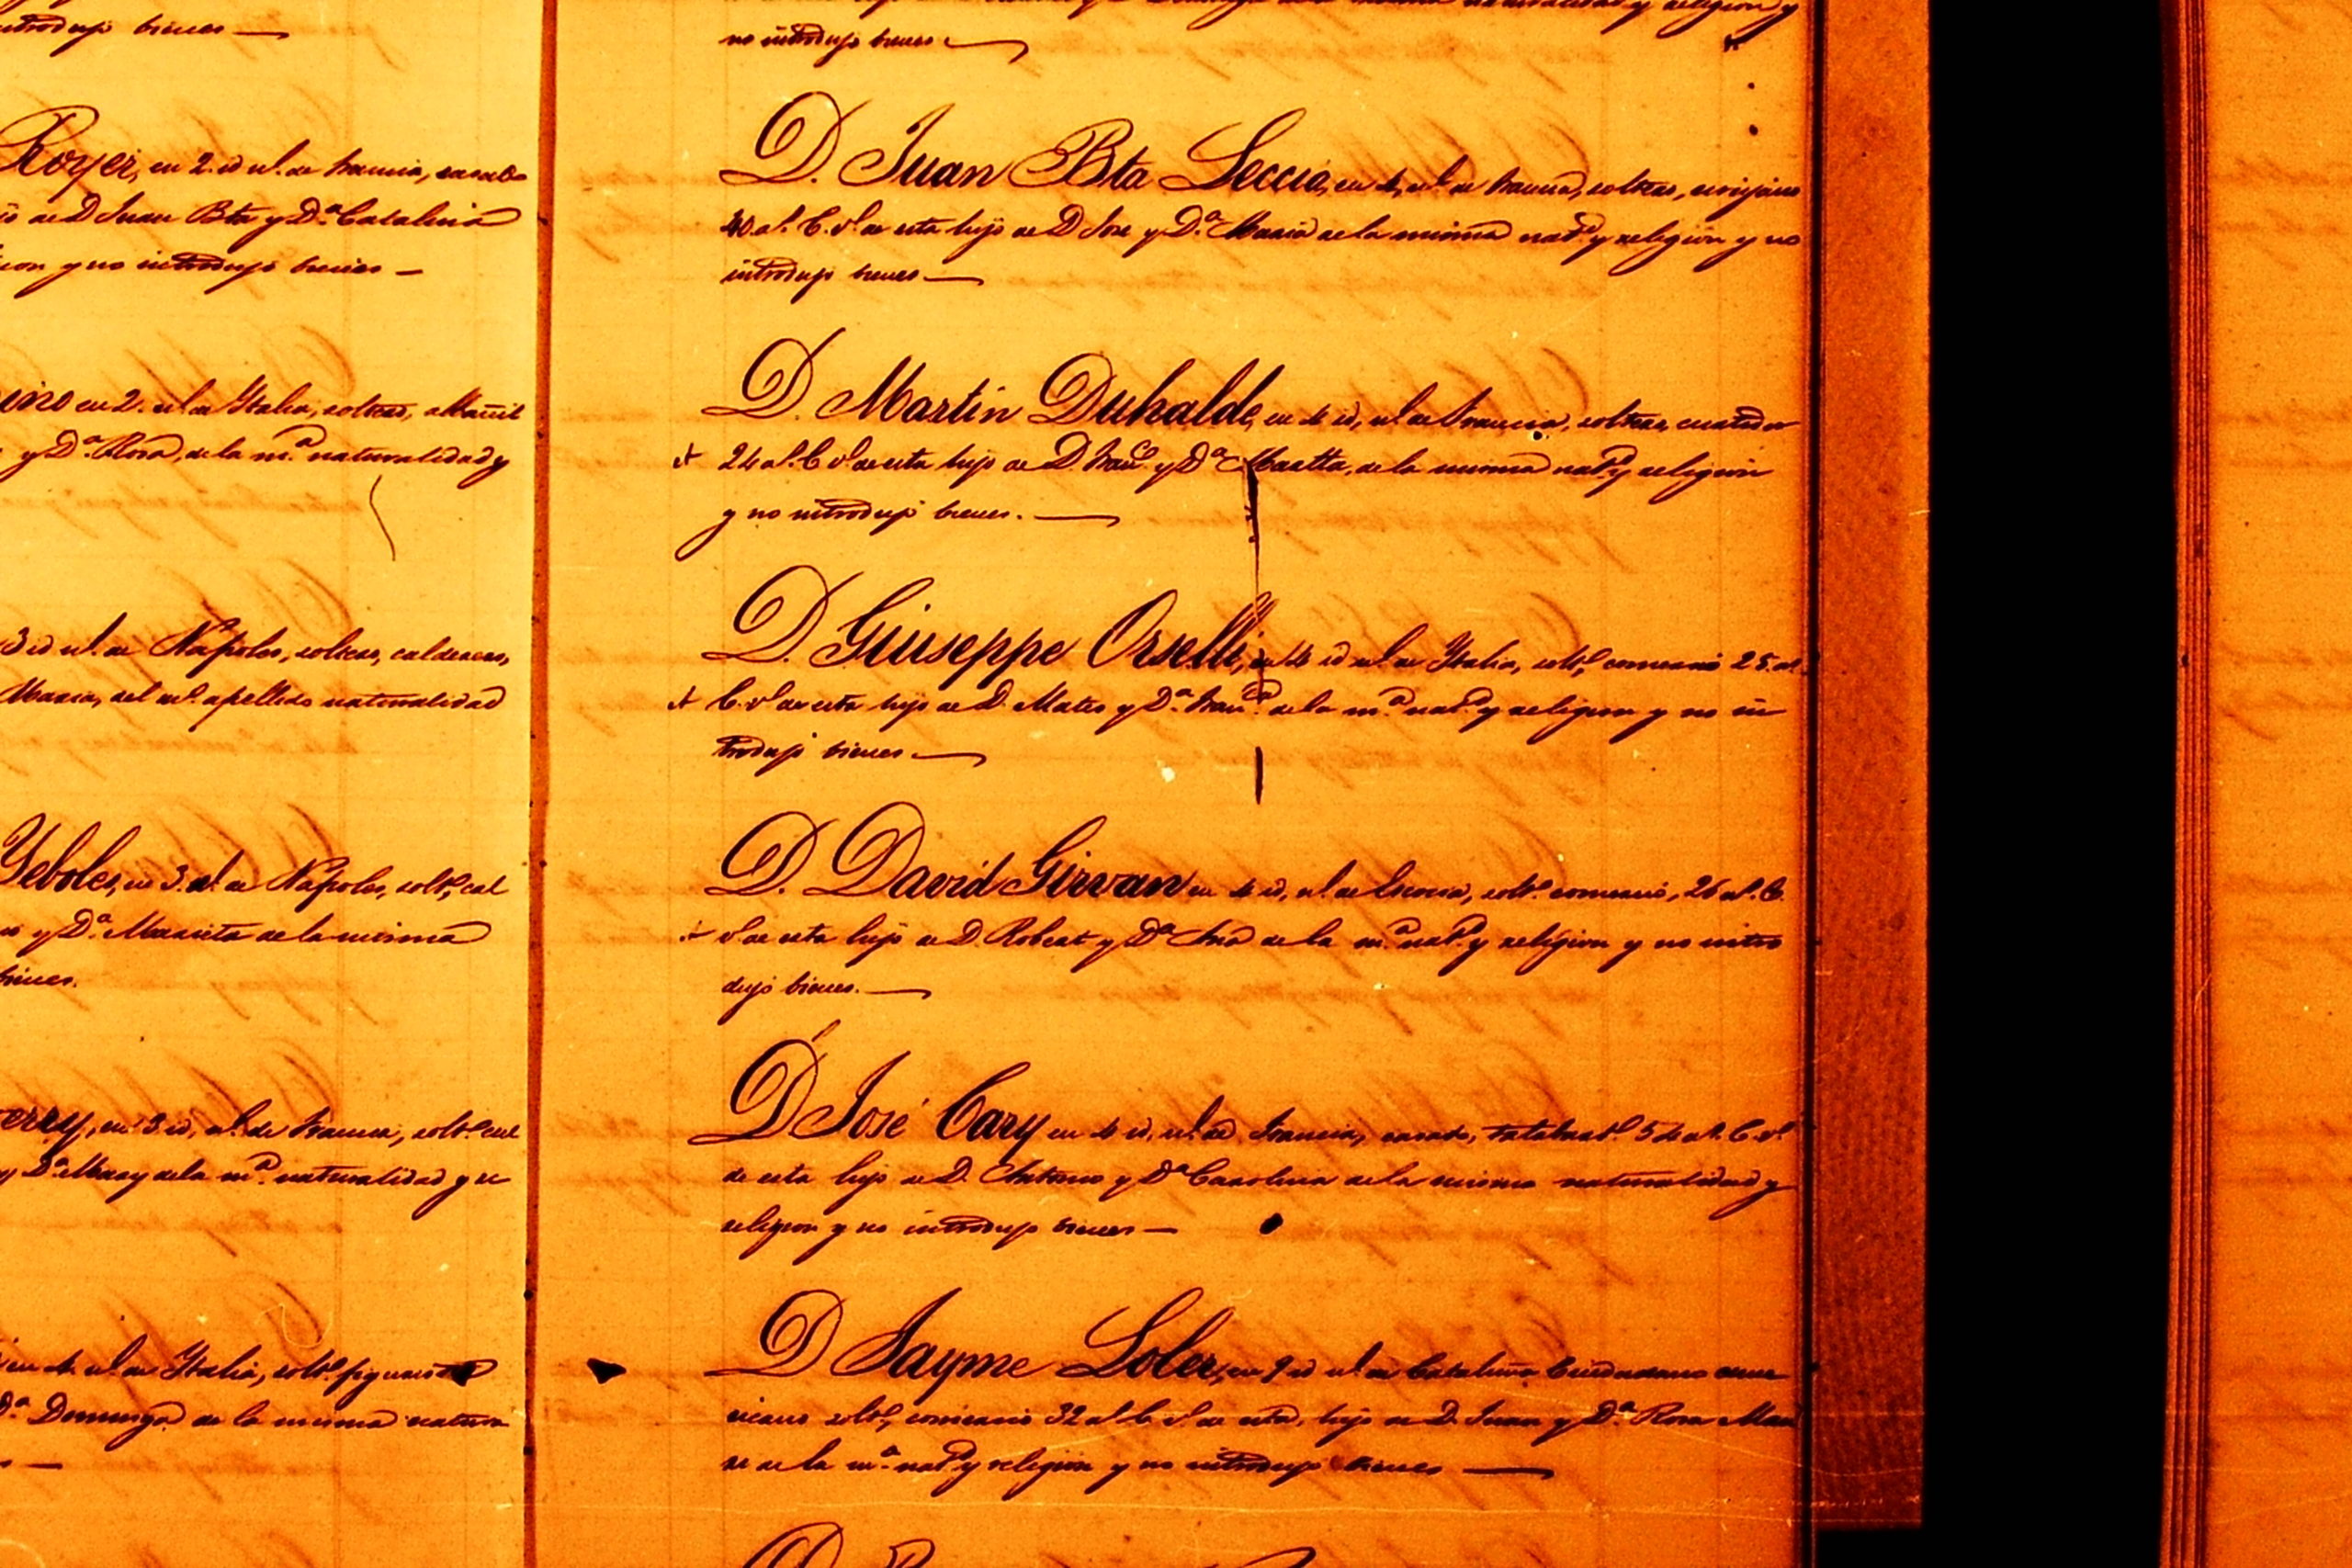 introdujo bienes —
Royer, en 2. id nl. de Francia, casado
de D Juan Bta y Dª Catalina
y no introdujo bienes —
en 2. nl. de Italia, soltero, albañil
y Dª Rosa, de la mª naturalidad y
3 id nl. de Napoles, soltero, calderero,
Maria, del ml. apellido naturalidad
Yeboles, en 3. nl. de Napoles, soltº, cal
y Dª Marieta de la misma
bienes.
en 3 id, nl. de Francia, soltº
y Dª Mary de la mª naturalidad y re
en 4. nl. de Italia, soltº
Dª Dominga de la misma natura
no introdujo bienes. —
D. Juan Bta Leccia, en 4, nl. de Francia, soltero, cirujano
40 al. C. vº de esta hijo de D Jose y Dª Maria de la misma natd. y religion y no
introdujo bienes —
D. Martin Duhalde, en 4 id, nl. de Francia, soltero, curtidor
24 al. C vº de esta hijo de D Franco. y Dª Martta, de la misma natd. y religion
y no introdujo bienes. —
D. Giuseppe Orselli, en 4 id nl. de Italia, soltº, comercio 25 al.
C. vº de esta hijo de D. Mateo y Dª Franca. de la mª natd. y religion y no in
trodujo bienes —
D. David Girvan en 4 id, nl. de Escocia, soltº. comercio, 26 al. C.
vº de esta hijo de D. Robert y Dª Ana de la mª natd. y religion y no intro
dujo bienes. —
D José Cary en 4 id, nl. de Francia, casado, 54 al. C. vº
de esta hijo de D. Antonio y Dª Carolina de la misma naturalidad y
religion y no introdujo bienes —
D Jayme Soler, en 9 id nl. de Cataluña Ciudadano ame
ricano soltº, comercio 32 al C vº de esta, hijo de D. Juan y Dª Rosa
de la mª natd. y religion y no introdujo bienes —